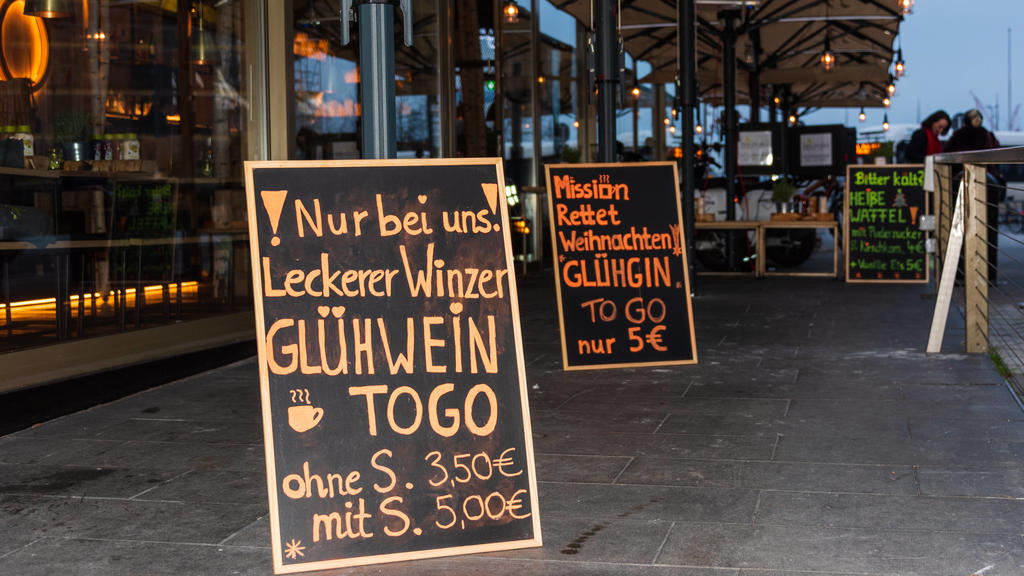 ! Nur bei uns!
Leckerer Winzer
GLÜHWEIN
TOGO
ohne S. 3,50€
mit S. 5,00€
Mission
Rettet
Weihnachten!
GLÜHGIN
TO GO
nur 5€
Bitter kalt?
HEIßE
WAFFEL
mit Puderzucker
+ Kirschen 4€
+ Vanille Eis 5€